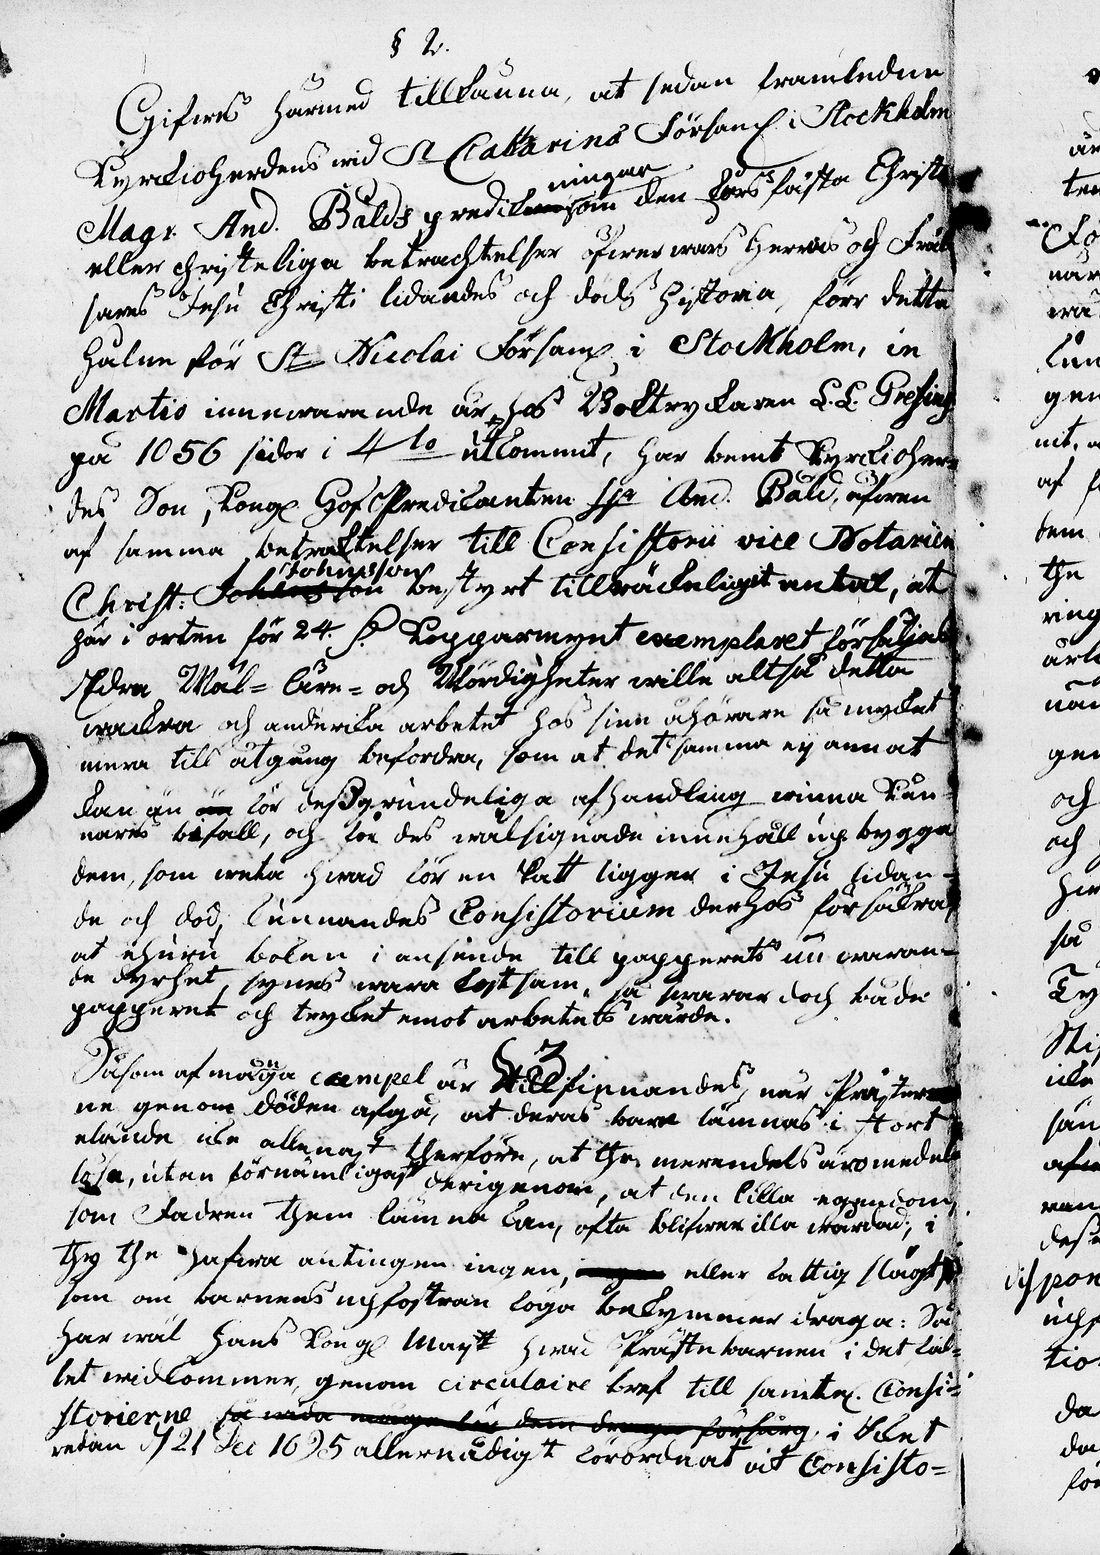 § 2.
Gifwes härmed tillkänna, at sedan framledne
Kyrckioherdens wid St Catharinæ Församl. i Stockholm
Magr. And. Bälds predik ningar som den fäste Christo
eller christeliga betrachtelser öfwer wårs Herras och Fräl
sares Jesu Christi lidandes och döds historia, förr detta
hålne för St Nicolai Församl. i Stockholm, in
Martio innewarande år, hos Boktryckaren L. L. Grefing
på 1056 sidor i 4to utkommit, har bemt Kyrckioher-
des Son, Kongl. Hof Predikanten And. Bäld, äfwen
af samma betraktelser till Consistorii vice Notarien
Christ: Johnsson bestyrt tillräckeligit antal, at
här i orten för 24. Kopparmynt exemplaret försäljas
Edra Wäl- Äre- och Wördigheter wille altså detta
wackra och anderika arbetet hos sine åhörare så mycket
mera till afgång befordra, som at det samma ey annat
kan än för dess grundeliga afhandling winna Kän-
nares bifall, och för des wälsignade innehåll upbygga
dem, som weta hwad för en Skatt ligger i Jesu lidan-
de och död, kunnandes Consistorium derhos försäkra
at ehuru boken i anseende till papperets nu waran-
de dyrhet, synes wara kostsam, så swarar doch både
papperet och trycket emot arbetets wärde.
§ 3
Såsom af många exempel är tillfinnandes, när Präster
ne genom döden afgå, at deras barn lämnas i stort
elände icke allenast therföre, at the merendels äro medel
lösa, utan förnämligast derigenom, at den lilla egendom,
som Fadren them lämna kan, ofta blifwer illa wårdad, i
thy the hafwa antingen ingen, eller fattig slägt
som om barnens upfostran föga bekymmer draga: Så
har wäl Hans Kongl. Mayt hwad Prästebarnen i det fal-
let widkommer, genom circulaire bref till samtel. Consi-
storierne i likhet
redan d 21 Dec 1695 allernådigst förordnat at Consisto-